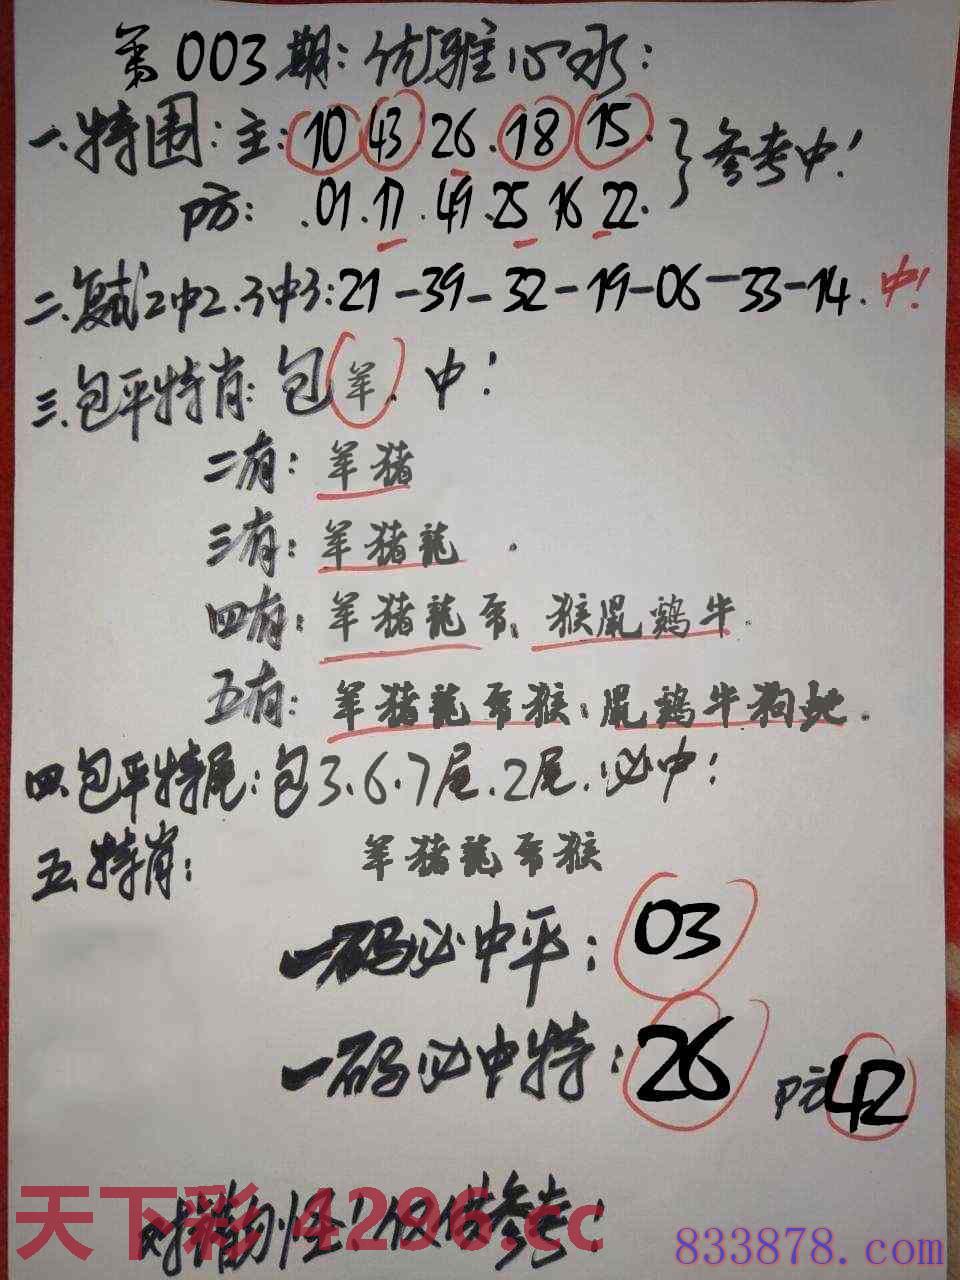 第003期:优雅心水:
一.特围:主:10 43.26.18.15.}参考中!
防:.01.17.49.25 16 22.
二.复试2中2.3中3:21-39-32-19-06-33-14.中!
三.包平特肖:包羊.中!
二有:羊猪
三有:羊猪龍.
四有:羊猪龍馬.猴鼠鷄牛.
五有:羊猪龍馬猴:鼠鷄牛狗蛇.
四.包平特尾:包3.6.7尾.2尾.必中!
五.特肖:羊猪龍馬猴
一码必中平:03
一码必中特:26 防42
对错勿怪!仅供参考!
天下彩4296.cc
833878.com